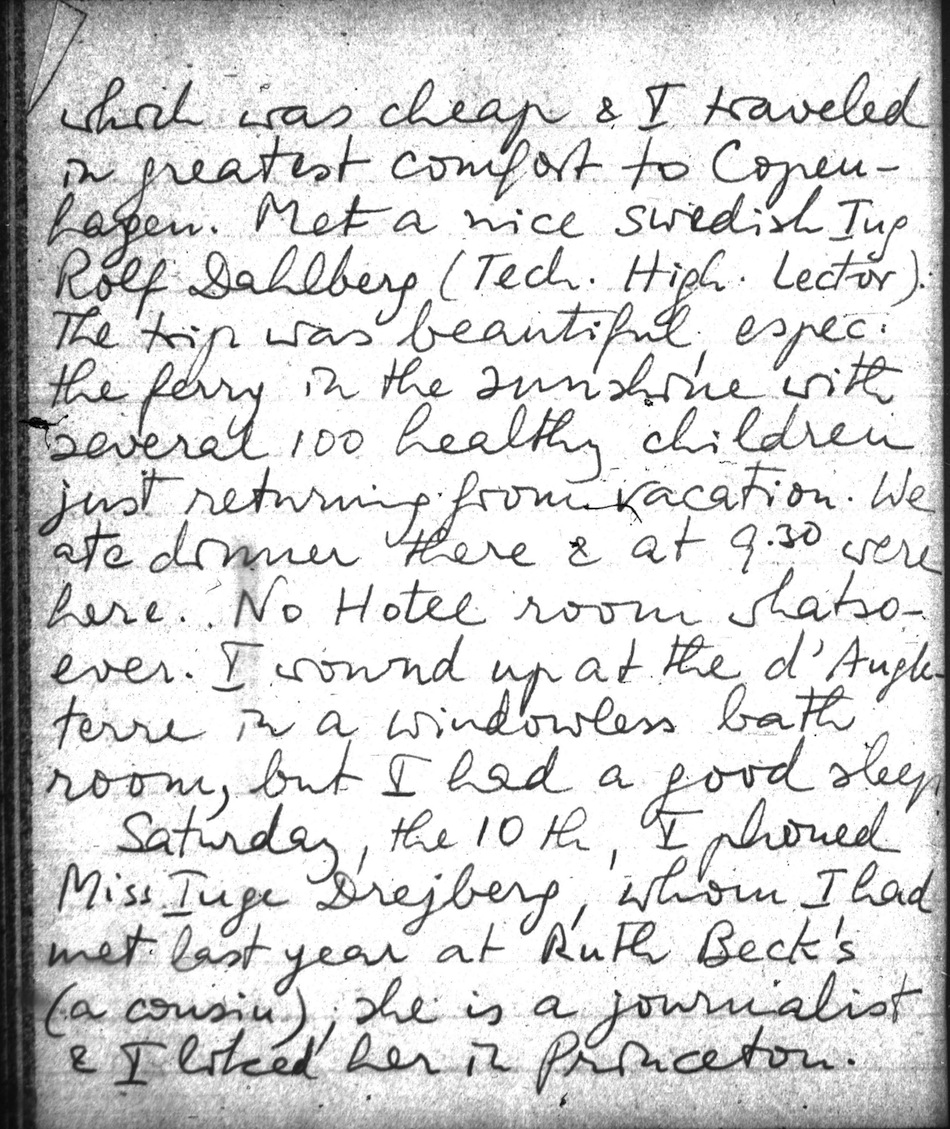 which was cheap & I traveled
in greatest comfort to Copen-
hagen. Met a nice swedish Ing
Rolf Dahlberg (Tech. High. Lector).
The trip was beautiful, espec.
the ferry in the sunshine with
several 100 healthy children
just returning from vacation. We
ate dinner there & at 9.30 were
here. No Hotel room whatso-
ever. I wound up at the d'Angle-
terre in a windowless bath
room, but I had a good sleep
Saturday, the 10th, I phoned
Miss Inge Drejberg, whom I had
met last year at Ruth Beck's
(a cousin), she is a journalist
& I liked her in Princeton.